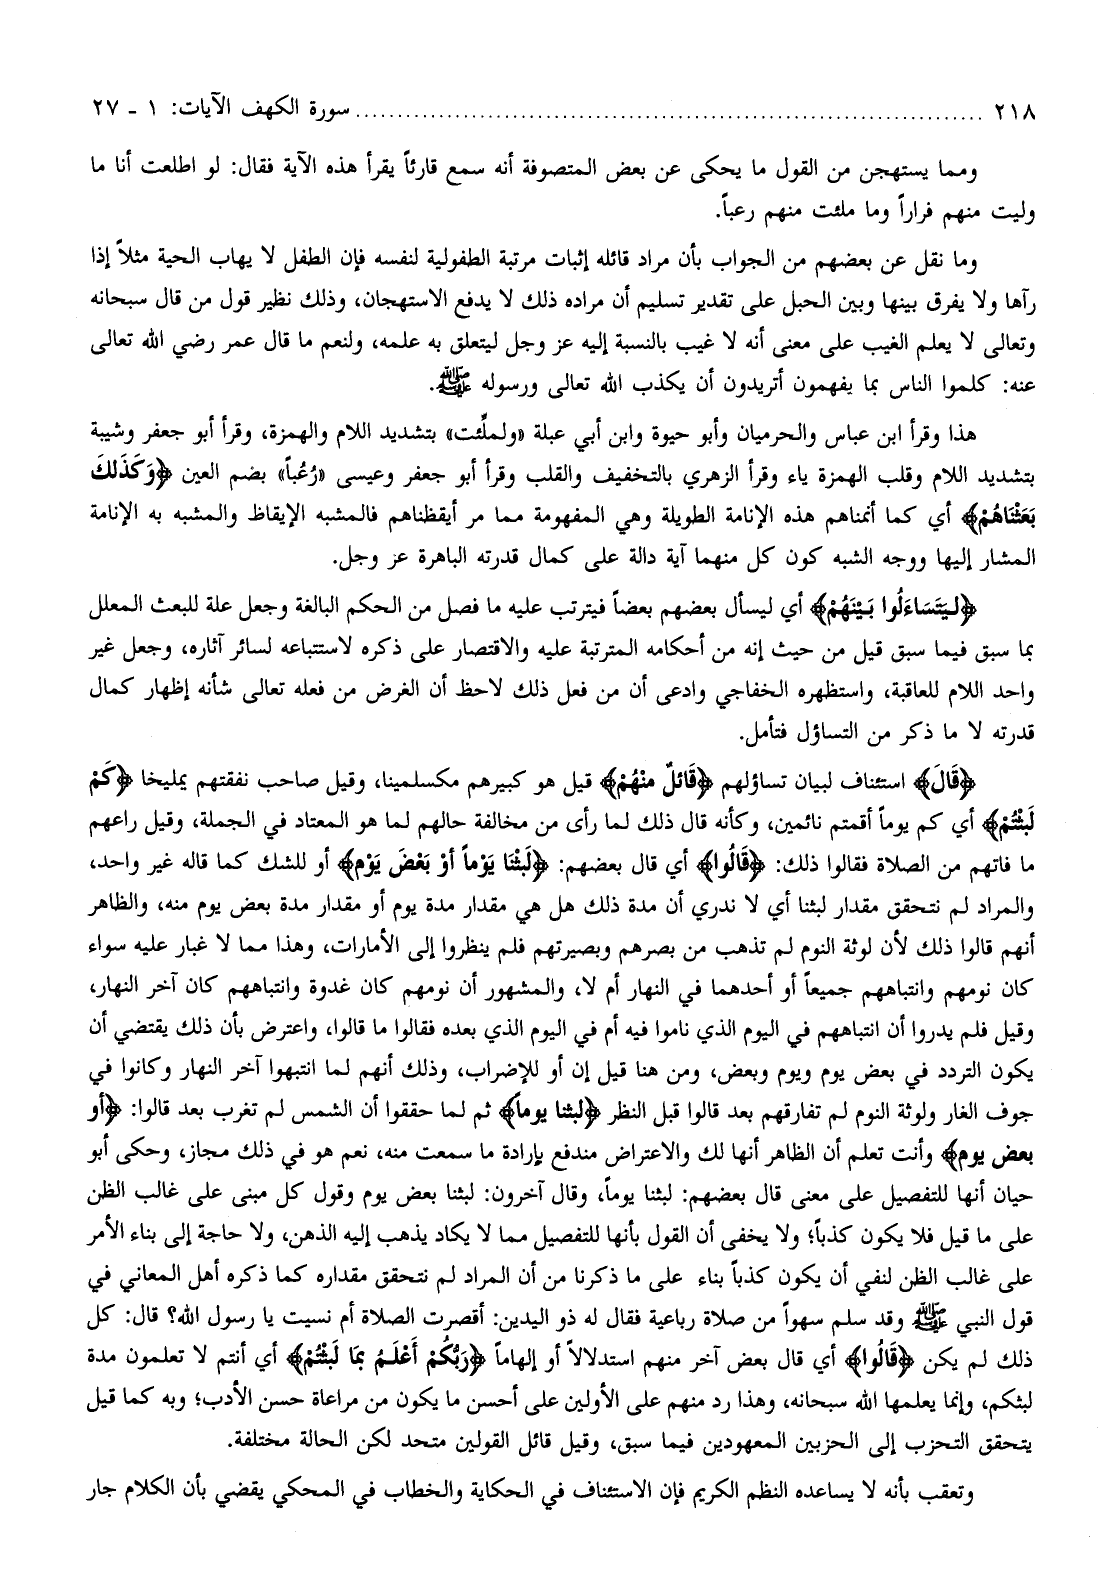 ٢١٨ ........................................................................ سورة الكهف الآيات: ١ - ٢٧
ومما يستهجن من القول ما يحكى عن بعض المتصوفة أنه سمع قارئاً يقرأ هذه الآية فقال: لو اطلعت أنا ما
وليت منهم فراراً وما ملئت منهم رعباً.
وما نقل عن بعضهم من الجواب بأن مراد قائله إثبات مرتبة الطفولية لنفسه فإن الطفل لا يهاب الحية مثلاً إذا
رآها ولا يفرق بينها وبين الحبل على تقدير تسليم أن مراده ذلك لا يدفع الاستهجان، وذلك نظير قول من قال سبحانه
وتعالى لا يعلم الغيب على معنى أنه لا غيب بالنسبة إليه عز وجل ليتعلق به علمه، ولنعم ما قال عمر رضي الله تعالى
عنه: كلموا الناس بما يفهمون أتريدون أن يكذب الله تعالى ورسوله ﷺ.
هذا وقرأ ابن عباس والحرميان وأبو حيوة وابن أبي عبلة «ولملِّئت» بتشديد اللام والهمزة، وقرأ أبو جعفر وشيبة
بتشديد اللام وقلب الهمزة ياء وقرأ الزهري بالتخفيف والقلب وقرأ أبو جعفر وعيسى «رُعُباً» بضم العين ﴿وَكَذَلكَ
بَعَثْنَاهُمْ﴾ أي كما أنمناهم هذه الإنامة الطويلة وهي المفهومة مما مر أيقظناهم فالمشبه الإيقاظ والمشبه به الإنامة
المشار إليها ووجه الشبه كون كل منهما آية دالة على كمال قدرته الباهرة عز وجل.
﴿لِيَتَسَاءَلُوا بَيْنَهُمْ﴾ أي ليسأل بعضهم بعضاً فيترتب عليه ما فصل من الحكم البالغة وجعل علة للبعث المعلل
بما سبق فيما سبق قيل من حيث إنه من أحكامه المترتبة عليه والاقتصار على ذكره لاستتباعه لسائر آثاره، وجعل غير
واحد اللام للعاقبة، واستظهره الخفاجي وادعى أن من فعل ذلك لاحظ أن الغرض من فعله تعالى شأنه إظهار كمال
قدرته لا ما ذكر من التساؤل فتأمل.
﴿قَالَ﴾ استئناف لبيان تساؤلهم ﴿قَائلٌ منْهُمْ﴾ قيل هو كبيرهم مكسلمينا، وقيل صاحب نفقتهم يمليخا ﴿كَمْ
لَبثْتُمْ﴾ أي كم يوماً أقمتم نائمين، وكأنه قال ذلك لما رأى من مخالفة حالهم لما هو المعتاد في الجملة، وقيل راعهم
ما فاتهم من الصلاة فقالوا ذلك: ﴿قَالُوا﴾ أي قال بعضهم: ﴿لَبثْنَا يَوْماً أوْ بَعْضَ يَوْم﴾ أو للشك كما قاله غير واحد،
والمراد لم نتحقق مقدار لبثنا أي لا ندري أن مدة ذلك هل هي مقدار مدة يوم أو مقدار مدة بعض يوم منه، والظاهر
أنهم قالوا ذلك لأن لوثة النوم لم تذهب من بصرهم وبصيرتهم فلم ينظروا إلى الأمارات، وهذا مما لا غبار عليه سواء
كان نومهم وانتباههم جميعاً أو أحدهما في النهار أم لا، والمشهور أن نومهم كان غدوة وانتباههم كان آخر النهار،
وقيل فلم يدروا أن انتباههم في اليوم الذي ناموا فيه أم في اليوم الذي بعده فقالوا ما قالوا، واعترض بأن ذلك يقتضي أن
يكون التردد في بعض يوم ويوم وبعض، ومن هنا قيل إن أو للإضراب، وذلك أنهم لما انتبهوا آخر النهار وكانوا في
جوف الغار ولوثة النوم لم تفارقهم بعد قالوا قبل النظر ﴿لبثنا يوماً﴾ ثم لما حققوا أن الشمس لم تغرب بعد قالوا: ﴿أو
بعض يوم﴾ وأنت تعلم أن الظاهر أنها لك والاعتراض مندفع بإرادة ما سمعت منه، نعم هو في ذلك مجاز، وحكى أبو
حيان أنها للتفصيل على معنى قال بعضهم: لبثنا يوماً، وقال آخرون: لبثنا بعض يوم وقول كل مبنى على غالب الظن
على ما قيل فلا يكون كذباً؛ ولا يخفى أن القول بأنها للتفصيل مما لا يكاد يذهب إليه الذهن، ولا حاجة إلى بناء الأمر
على غالب الظن لنفي أن يكون كذباً بناء على ما ذكرنا من أن المراد لم نتحقق مقداره كما ذكره أهل المعاني في
قول النبي ﷺ وقد سلم سهواً من صلاة رباعية فقال له ذو اليدين: أقصرت الصلاة أم نسيت يا رسول الله؟ قال: كل
ذلك لم يكن ﴿قَالُوا﴾ أي قال بعض آخر منهم استدلالاً أو إلهاماً ﴿رَبُّكُمْ أَعْلَمُ بمَا لَبثْتُمْ﴾ أي أنتم لا تعلمون مدة
لبثكم، وإنما يعلمها الله سبحانه، وهذا رد منهم على الأولين على أحسن ما يكون من مراعاة حسن الأدب؛ وبه كما قيل
يتحقق التحزب إلى الحزبين المعهودين فيما سبق، وقيل قائل القولين متحد لكن الحالة مختلفة.
وتعقب بأنه لا يساعده النظم الكريم فإن الاستئناف في الحكاية والخطاب في المحكي يقضي بأن الكلام جار